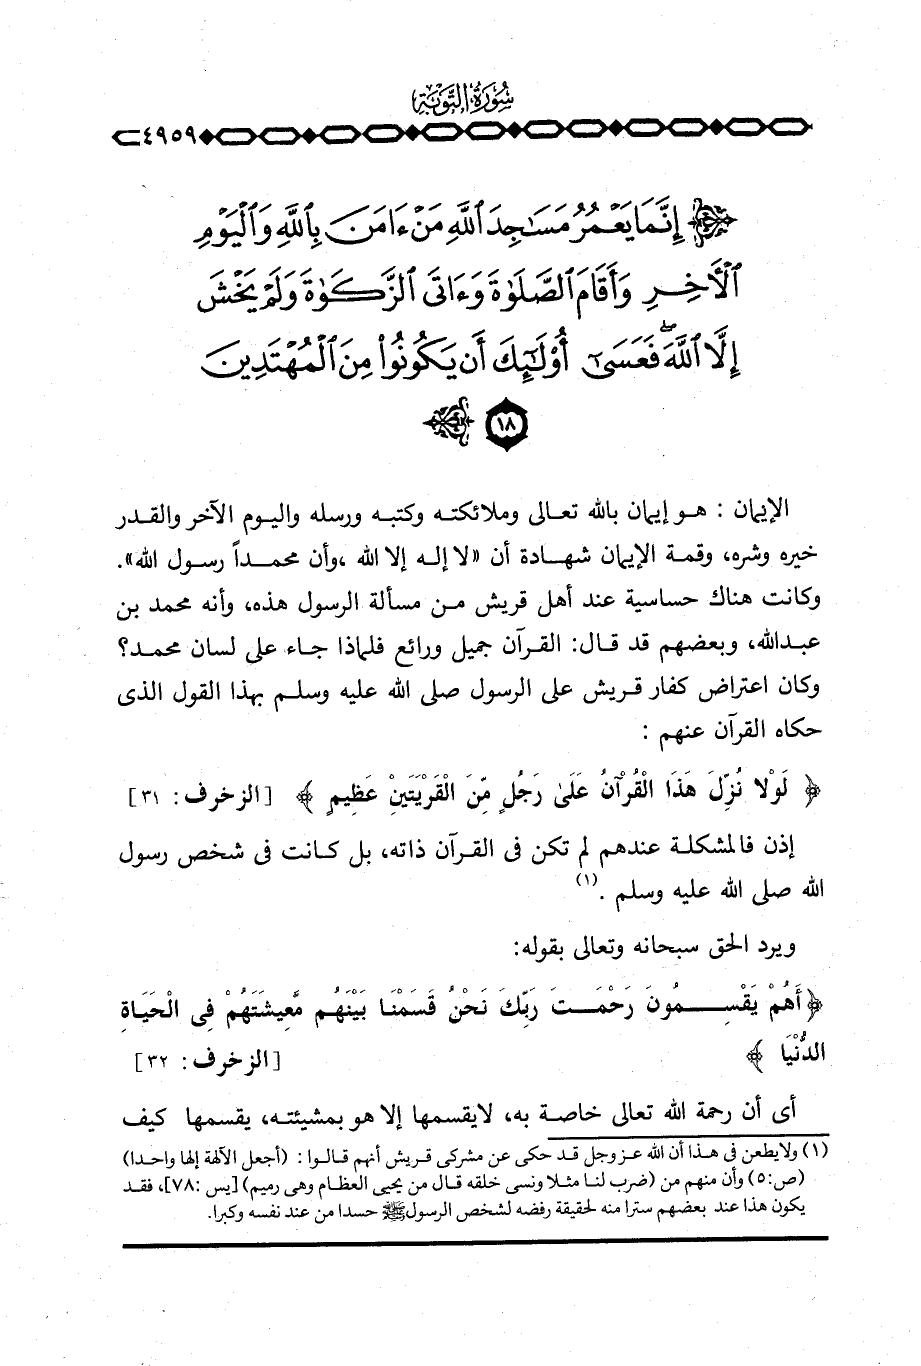 سُورَةُ التَّوْبَة
٤٩٥٩
إِنَّمَا يَعْمُرُ مَسَٰجِدَ ٱللَّهِ مَنْ ءَامَنَ بِٱللَّهِ وَٱلْيَوْمِ
ٱلْأَخِرِ وَأَقَامَ ٱلصَّلَوٰةَ وَءَاتَى ٱلزَّكَوٰةَ وَلَمْ يَخْشَ
إِلَّا ٱللَّهَ ۖ فَعَسَىٰٓ أُوْلَٰٓئِكَ أَن يَكُونُواْ مِنَ ٱلْمُهْتَدِينَ
١٨
الإيمان : هو إيمان بالله تعالى وملائكته وكتبه ورسله واليوم الآخر والقدر
خيره وشره، وقمة الإيمان شهادة أن «لا إله إلا الله ،وأن محمداً رسول الله».
وكانت هناك حساسية عند أهل قريش من مسألة الرسول هذه، وأنه محمد بن
عبدالله، وبعضهم قد قال: القرآن جميل ورائع فلماذا جاء على لسان محمد؟
وكان اعتراض كفار قريش على الرسول صلى الله عليه وسلم بهذا القول الذى
حكاه القرآن عنهم :
﴿ لَوْلا نُزِّلَ هَذَا الْقُرْآنُ عَلَىٰ رَجُلٍ مِّنَ الْقَرْيَتَيْنِ عَظِيمٍ ﴾ [الزخرف: ٣١]
إذن فالمشكلة عندهم لم تكن فى القرآن ذاته، بل كانت فى شخص رسول
الله صلى الله عليه وسلم .(١)
ويرد الحق سبحانه وتعالى بقوله:
﴿أَهُمْ يَقْسِمُونَ رَحْمَتَ رَبِّكَ نَحْنُ قَسَمْنَا بَيْنَهُم مَّعِيشَتَهُمْ فِى الْحَيَاةِ
الدُّنْيَا ﴾ [الزخرف: ٣٢]
أى أن رحمة الله تعالى خاصة به، لايقسمها إلا هو بمشيئته، يقسمها كيف
(١) ولايطعن فى هذا أن الله عز وجل قد حكى عن مشركى قريش أنهم قالوا : (أجعل الآلهة إلها واحدا)
(ص:٥) وأن منهم من (ضرب لنا مثلا ونسى خلقه قال من يحيى العظام وهى رميم) [يس :٧٨]، فقد
يكون هذا عند بعضهم سترا منه لحقيقة رفضه لشخص الرسول ﷺ حسدا من عند نفسه وكبرا.